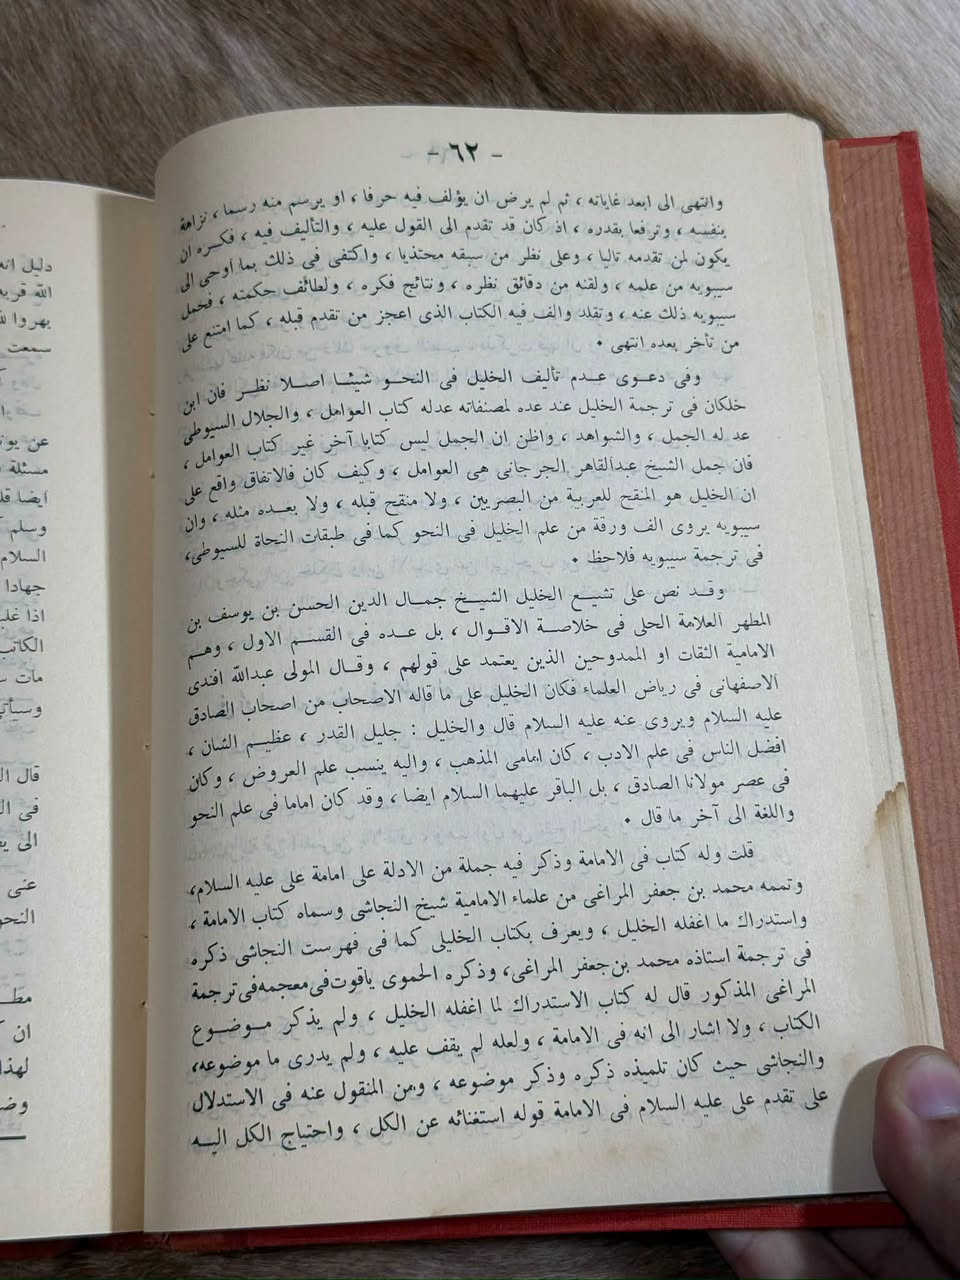 - ٦٢ -
وانتهى الى ابعد غاياته ، ثم لم يرض ان يؤلف فيه حرفا ، او يرسم منه رسما ، نزاهة
بنفسه ، وترفعا بقدره ، اذ كان قد تقدم الى القول عليه ، والتأليف فيه ، فكره ان
يكون لمن تقدمه تاليا ، وعلى نظر من سبقه محتذيا ، واكتفى فى ذلك بما اوحى الى
سيبويه من علمه ، ولقنه من دقائق نظره ، ونتائج فكره ، ولطائف حكمته ، فحمل
سيبويه ذلك عنه ، وتقلد والف فيه الكتاب الذى اعجز من تقدم قبله ، كما امتنع على
من تأخر بعده انتهى .
وفى دعوى عدم تأليف الخليل فى النحو شيئا اصلا نظر فان ابن
خلكان فى ترجمة الخليل عند عده لمصنفاته عدله كتاب العوامل ، والجلال السيوطى
عد له الجمل ، والشواهد ، واظن ان الجمل ليس كتابا آخر غير كتاب العوامل ،
فان جمل الشيخ عبدالقاهر الجرجانى هى العوامل ، وكيف كان فالاتفاق واقع على
ان الخليل هو المنقح للعربية من البصريين ، ولا منقح قبله ، ولا بعده مثله ، وان
سيبويه يروى الف ورقة من علم الخليل فى النحو كما فى طبقات النحاة للسيوطى،
فى ترجمة سيبويه فلاحظ .
وقد نص على تشيع الخليل الشيخ جمال الدين الحسن بن يوسف بن
المطهر العلامة الحلى فى خلاصة الاقوال ، بل عده فى القسم الاول ، وهم
الامامية الثقات او الممدوحين الذين يعتمد على قولهم ، وقال المولى عبدالله افندى
الاصفهانى فى رياض العلماء فكان الخليل على ما قاله الاصحاب من اصحاب الصادق
عليه السلام ويروى عنه عليه السلام قال والخليل : جليل القدر ، عظيم الشان ،
افضل الناس فى علم الادب ، كان امامى المذهب ، واليه ينسب علم العروض ، وكان
فى عصر مولانا الصادق ، بل الباقر عليهما السلام ايضا ، وقد كان اماما فى علم النحو
واللغة الى آخر ما قال .
قلت وله كتاب فى الامامة وذكر فيه جملة من الادلة على امامة على عليه السلام،
وتممه محمد بن جعفر المراغى من علماء الامامية شيخ النجاشى وسماه كتاب الامامة ،
واستدراك ما اغفله الخليل ، ويعرف بكتاب الخليلى كما فى فهرست النجاشى ذكره
فى ترجمة استاذه محمد بن جعفر المراغى، وذكره الحموى ياقوت فى معجمه فى ترجمة
المراغى المذكور قال له كتاب الاستدراك لما اغفله الخليل ، ولم يذكر موضوع
الكتاب ، ولا اشار الى انه فى الامامة ، ولعله لم يقف عليه ، ولم يدرى ما موضوعه،
والنجاشى حيث كان تلميذه ذكره وذكر موضوعه ، ومن المنقول عنه فى الاستدلال
على تقدم على عليه السلام فى الامامة قوله استغنائه عن الكل ، واحتياج الكل اليه
دليل انه
الله قربه
سمعت
مسئلة
ايضا
وسلم
السلام
جهادا
الكاتب
مات
قال
النحو
ان